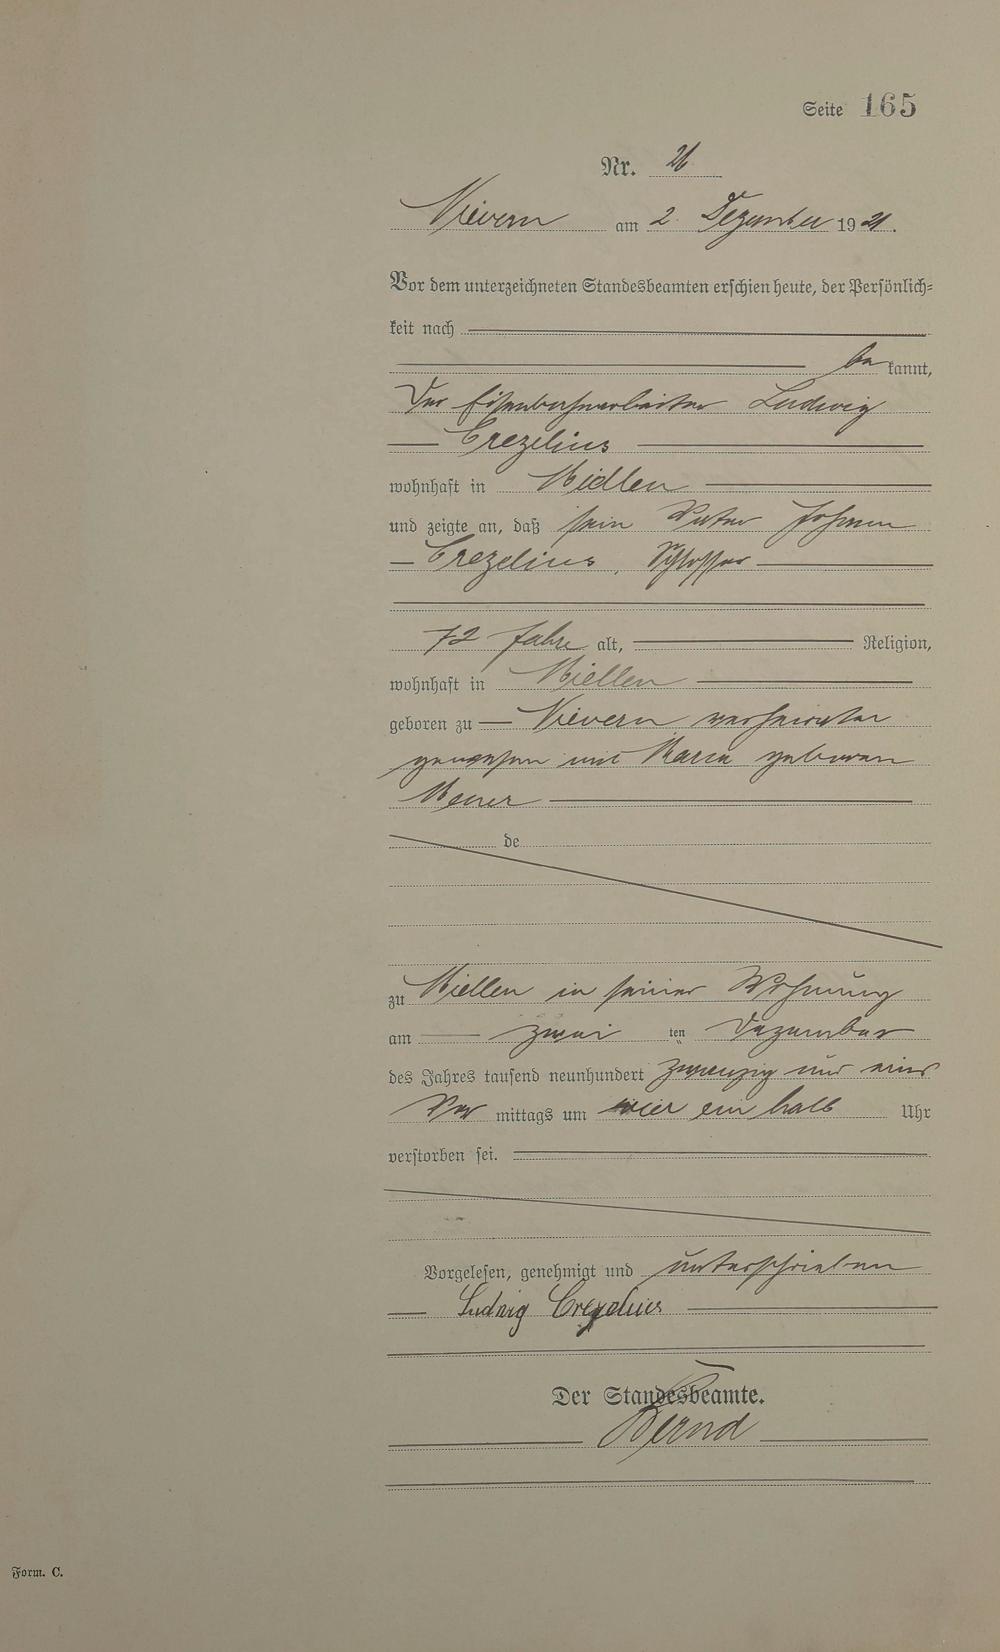 Seite 165
Nr. 26
Nievern am 2. Dezember 1921.
Vor dem unterzeichneten Standesbeamten erschien heute, der Persönlich=
keit nach
be kannt,
Der Eisenbahnarbeiter Ludwig
Crezelius
wohnhaft in Miellen
und zeigte an, daß sein Vater Johann
Crezelius, Schlosser
72 Jahre alt, Religion,
wohnhaft in Miellen
geboren zu Nievern verheiratet
gewesen mit Maria geboren
de
zu Miellen in seiner Wohnung
am zwei ten Dezember
des Jahres tausend neunhundert zwanzig und eins
Vor mittags um vier ein halb Uhr
verstorben sei.
Vorgelesen, genehmigt und unterschrieben
Ludwig Crezelius
Der Standesbeamte.
Bernd
Form. C.